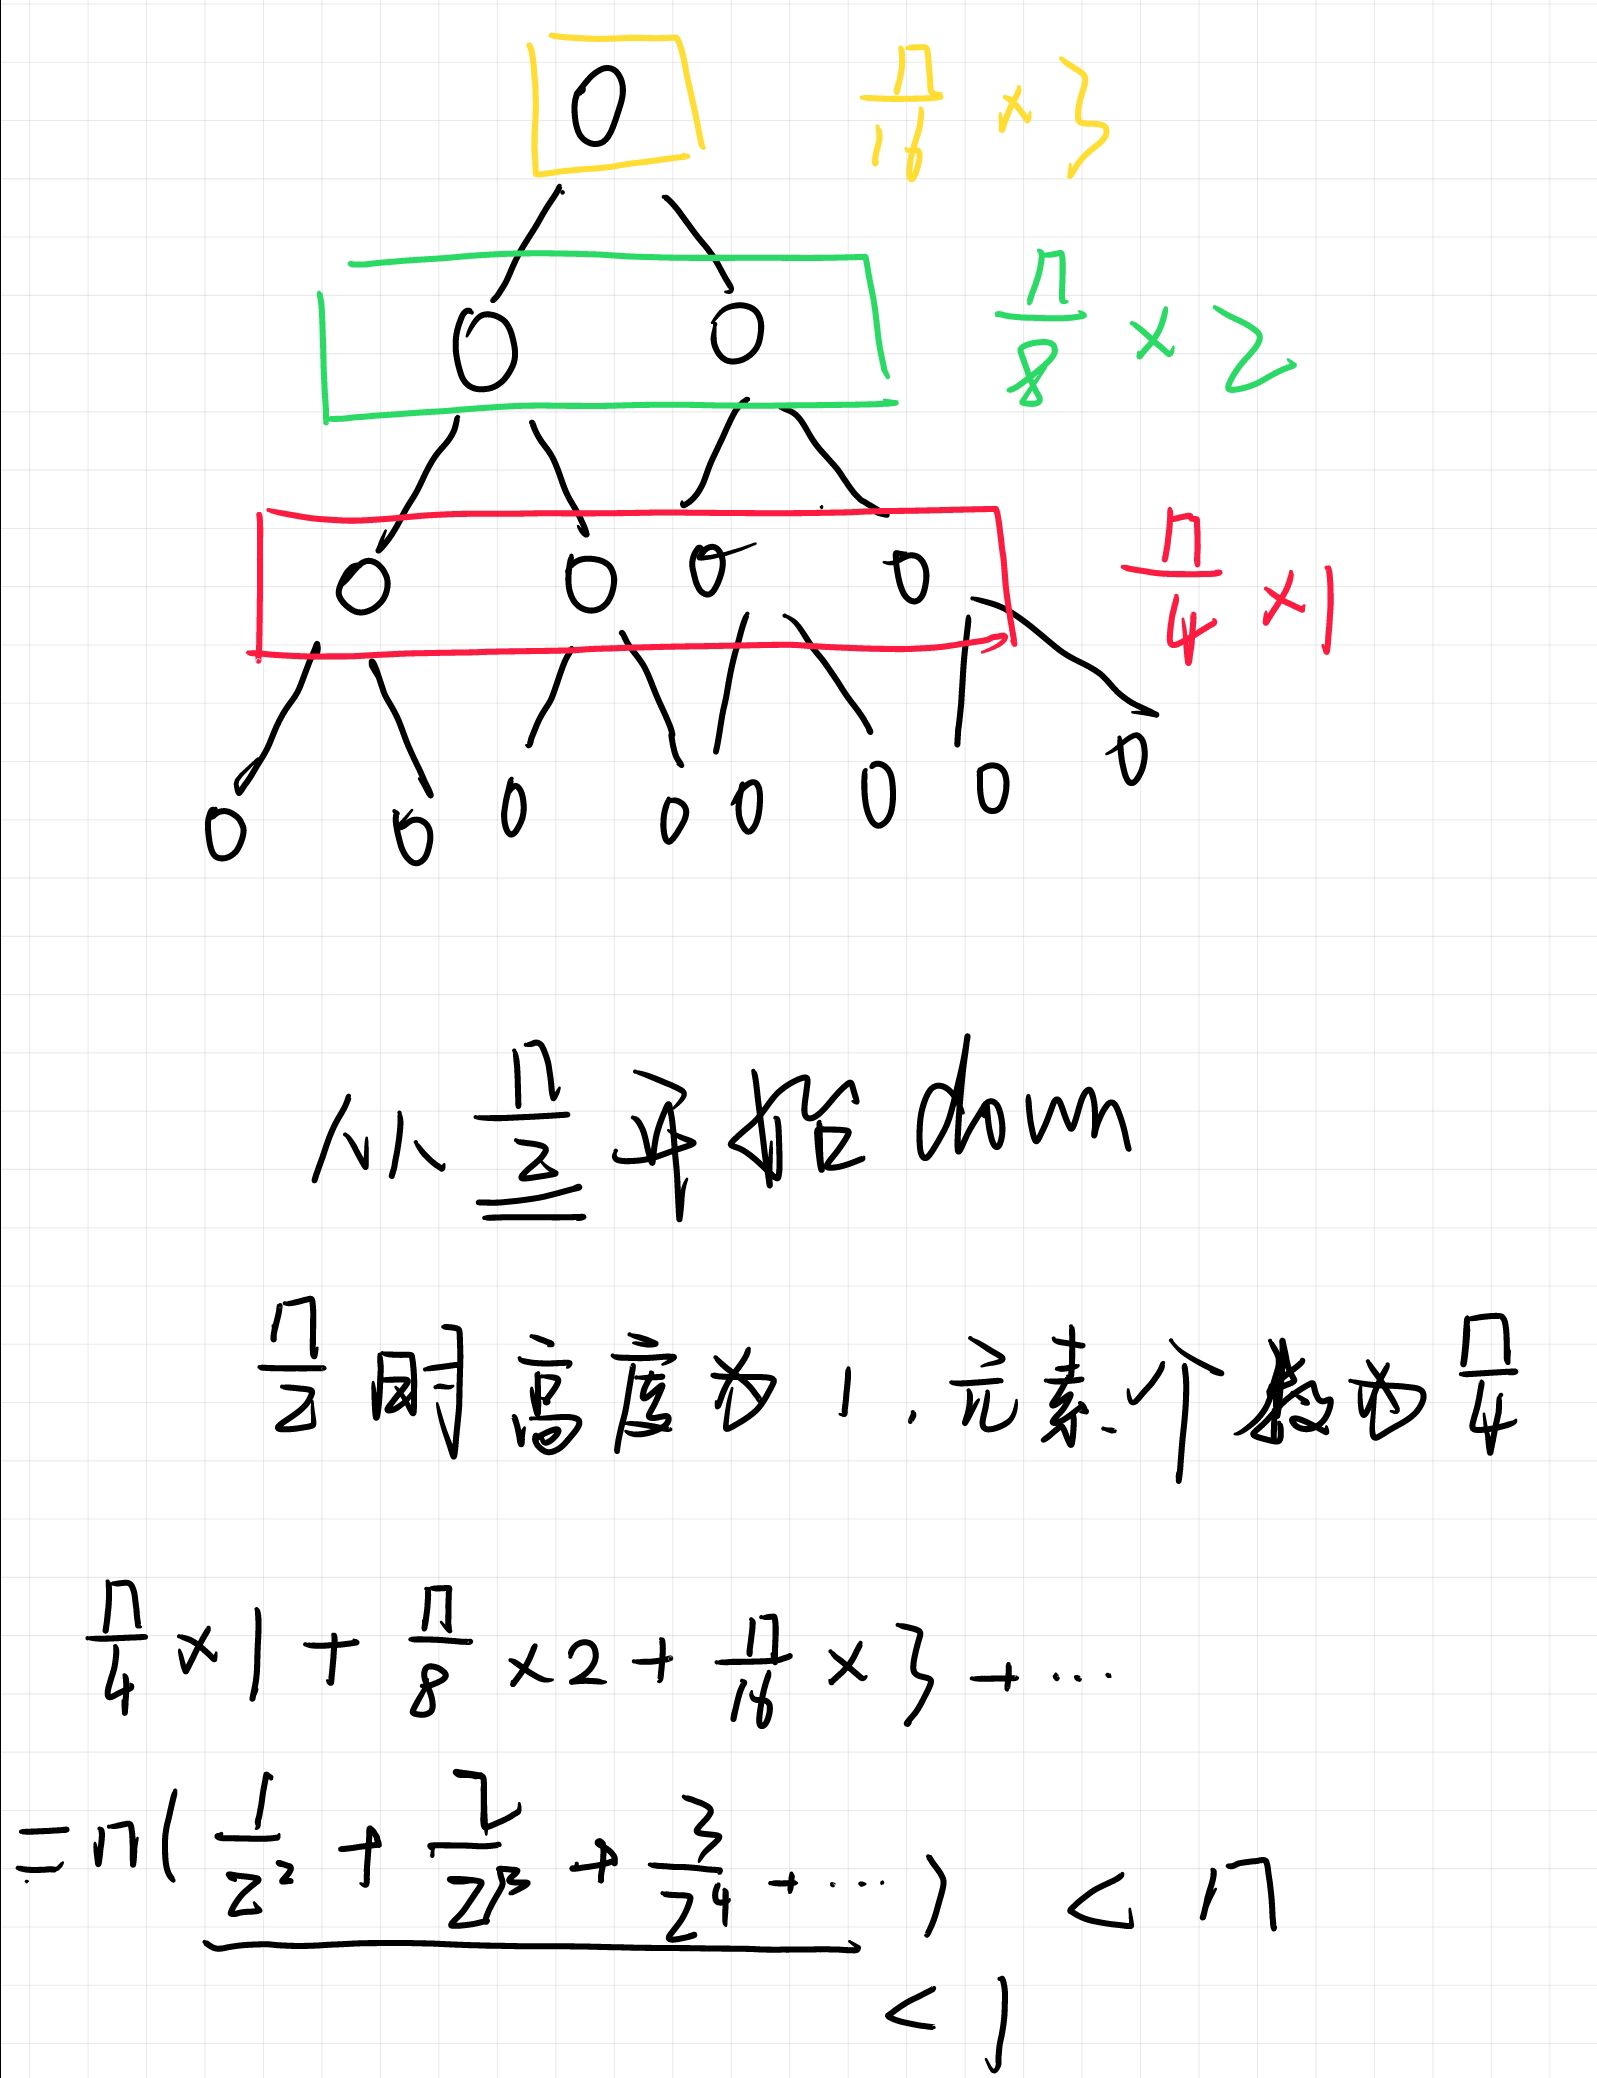 n/16 ×3
n/8 ×2
n/4 ×1
从 n/2 开始 down
n/2 时高度为1.元素个数为 n/4
n/4 ×1 + n/8 ×2 + n/16 ×3 + ...
= n( 1/2² + 2/2³ + 3/2⁴ + ... ) < n
< 1